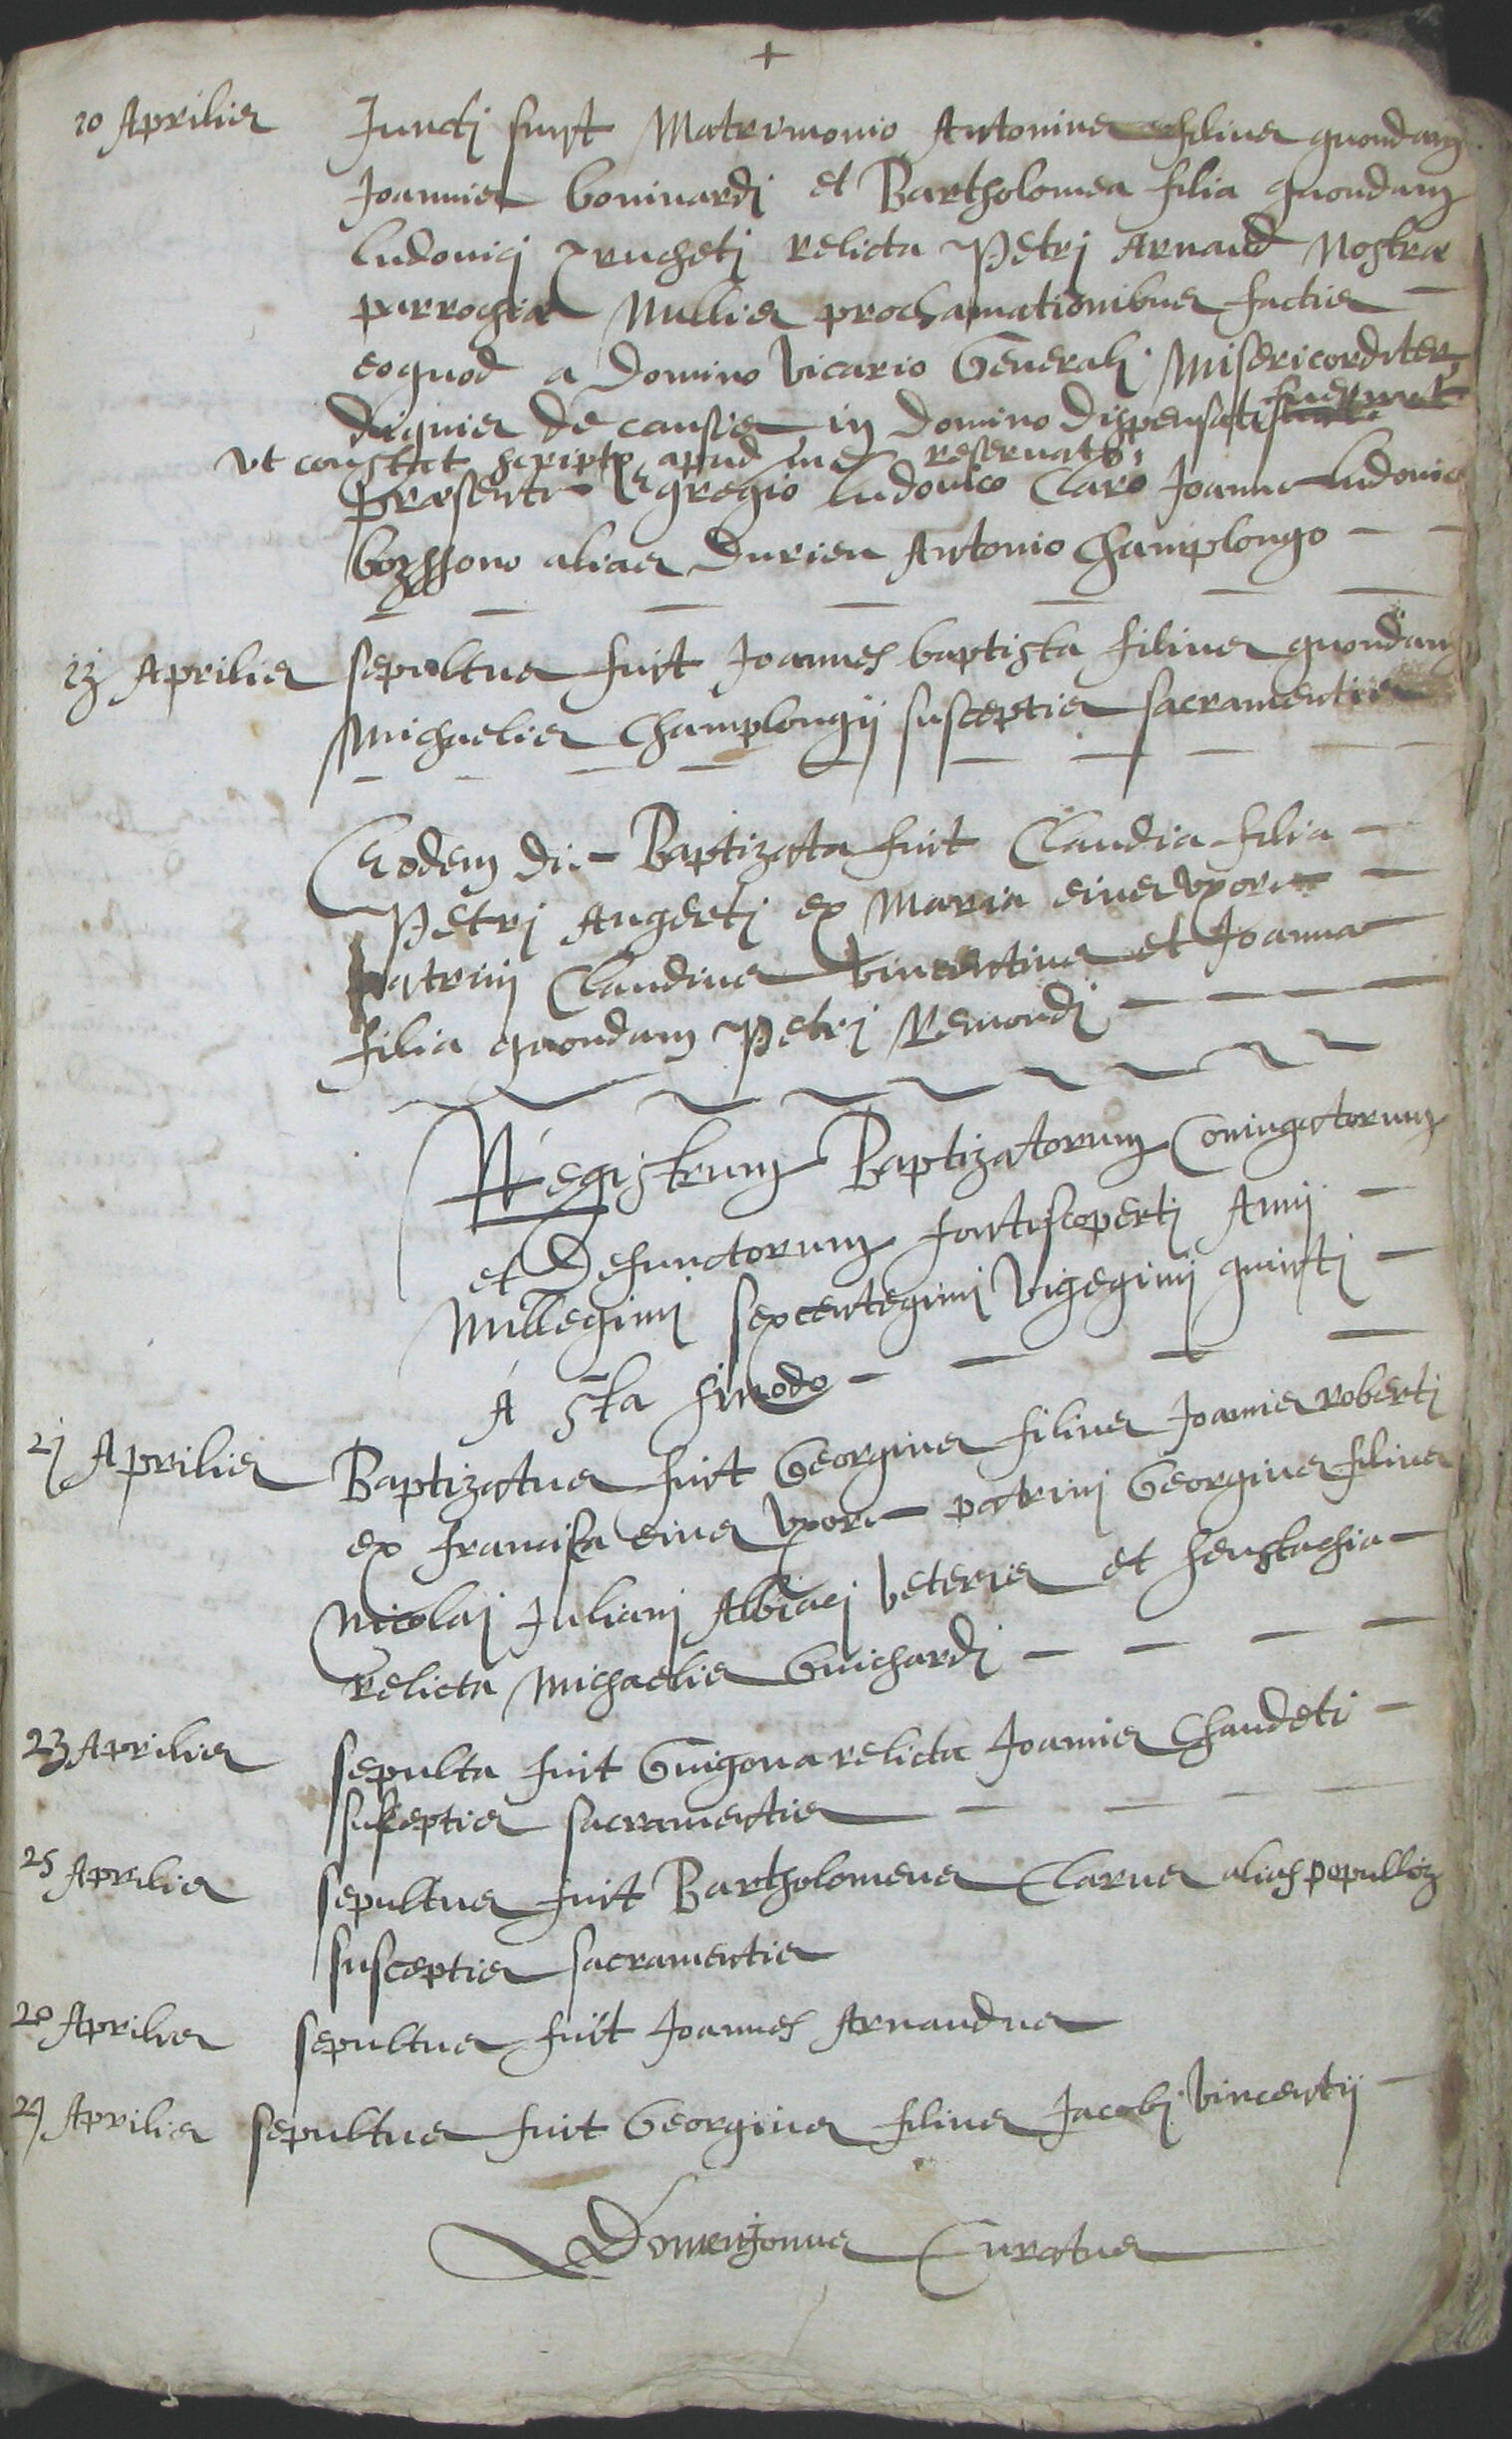 +
10 Aprilis Juncti sunt Matrimonio Antonius filius quondam
Joannis boniuardi et Bartholomea filia quondam
Ludouici Trucheti relicta Petri Arnaud Nostræ
parrochiæ Nullis proclamationibus factis —
eoquod a Domino Vicario Generali Misericorditer
dignis de causis in Domino Dispensati fuerunt
vt constat scripto apud me reseruato,
præsente Egregio Ludouico Claro Joanne Ludouico
bozssono alias Durieu Antonio Champlongo — —
13 Aprilis sepultus fuit Joannes baptista filius quondam
Michaelis Champlongii susceptis sacramentis
Eodem die — Baptizata fuit Claudia filia —
Petri Augerti ex Maria eius vxore —
patrini Claudius Vincentius et Joanna
filia quondam Petri Remondi — — —
Registrum Baptizatorum Coniugatorum
et Defunctorum fontiscoperti Anni —
Millegimi sexcentegimi Vigegimi quinti —
A sta sinodo — — — —
21 Aprilis Baptizatus fuit Georgius filius Joannis roberti
ex francisca eius vxore patrini Georgius filius
Nicolai Juliani Albiaci Veteris et heustachia —
relicta Michaelis Guichardi — — — —
23 Aprilis sepulta fuit Guigona relicta Joannis Chaudeti —
susceptis sacramentis — — — —
25 Aprilis sepultus fuit Bartholomeus Clarus alias popullioz
susceptis sacramentis
20 Aprilis sepultus fuit Joannes Arnaudus
27 Aprilis sepultus fuit Georgius filius Jacobi Vincentii —
Domenjonus Curatus